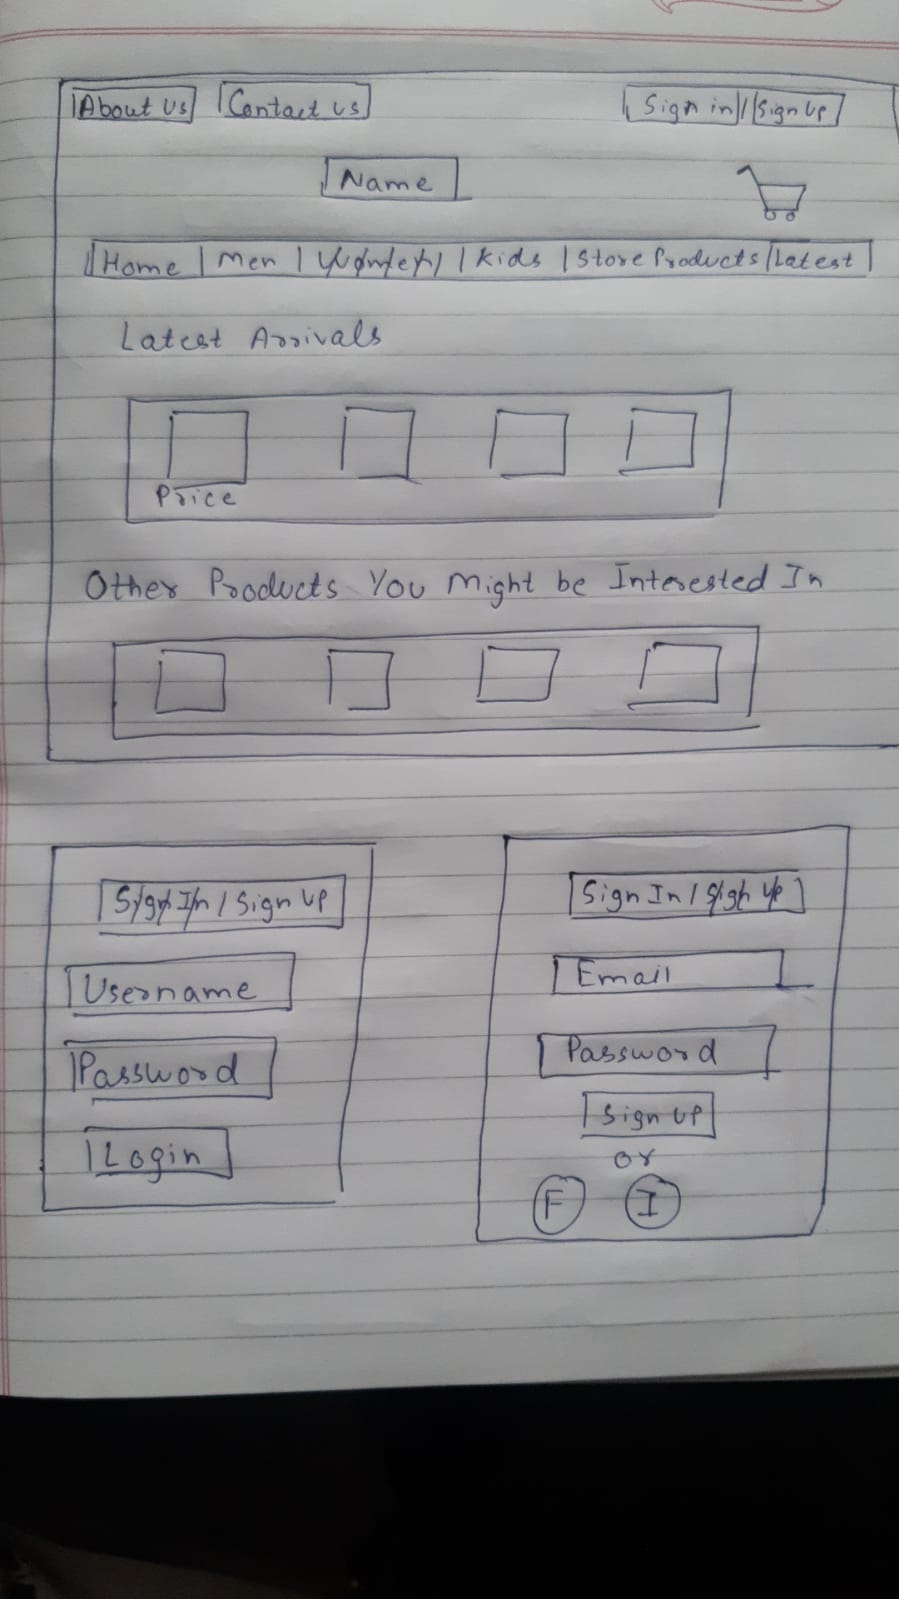 About Us Contact us Sign in / Sign Up
Name
Home | Men | Women | Kids | Store Products | Latest
Latest Arrivals
Price
Other Products You Might be Interested In
Sign In / Sign Up
Username
Password
Login
Sign In / Sign Up
Email
Password
Sign Up
or
F I